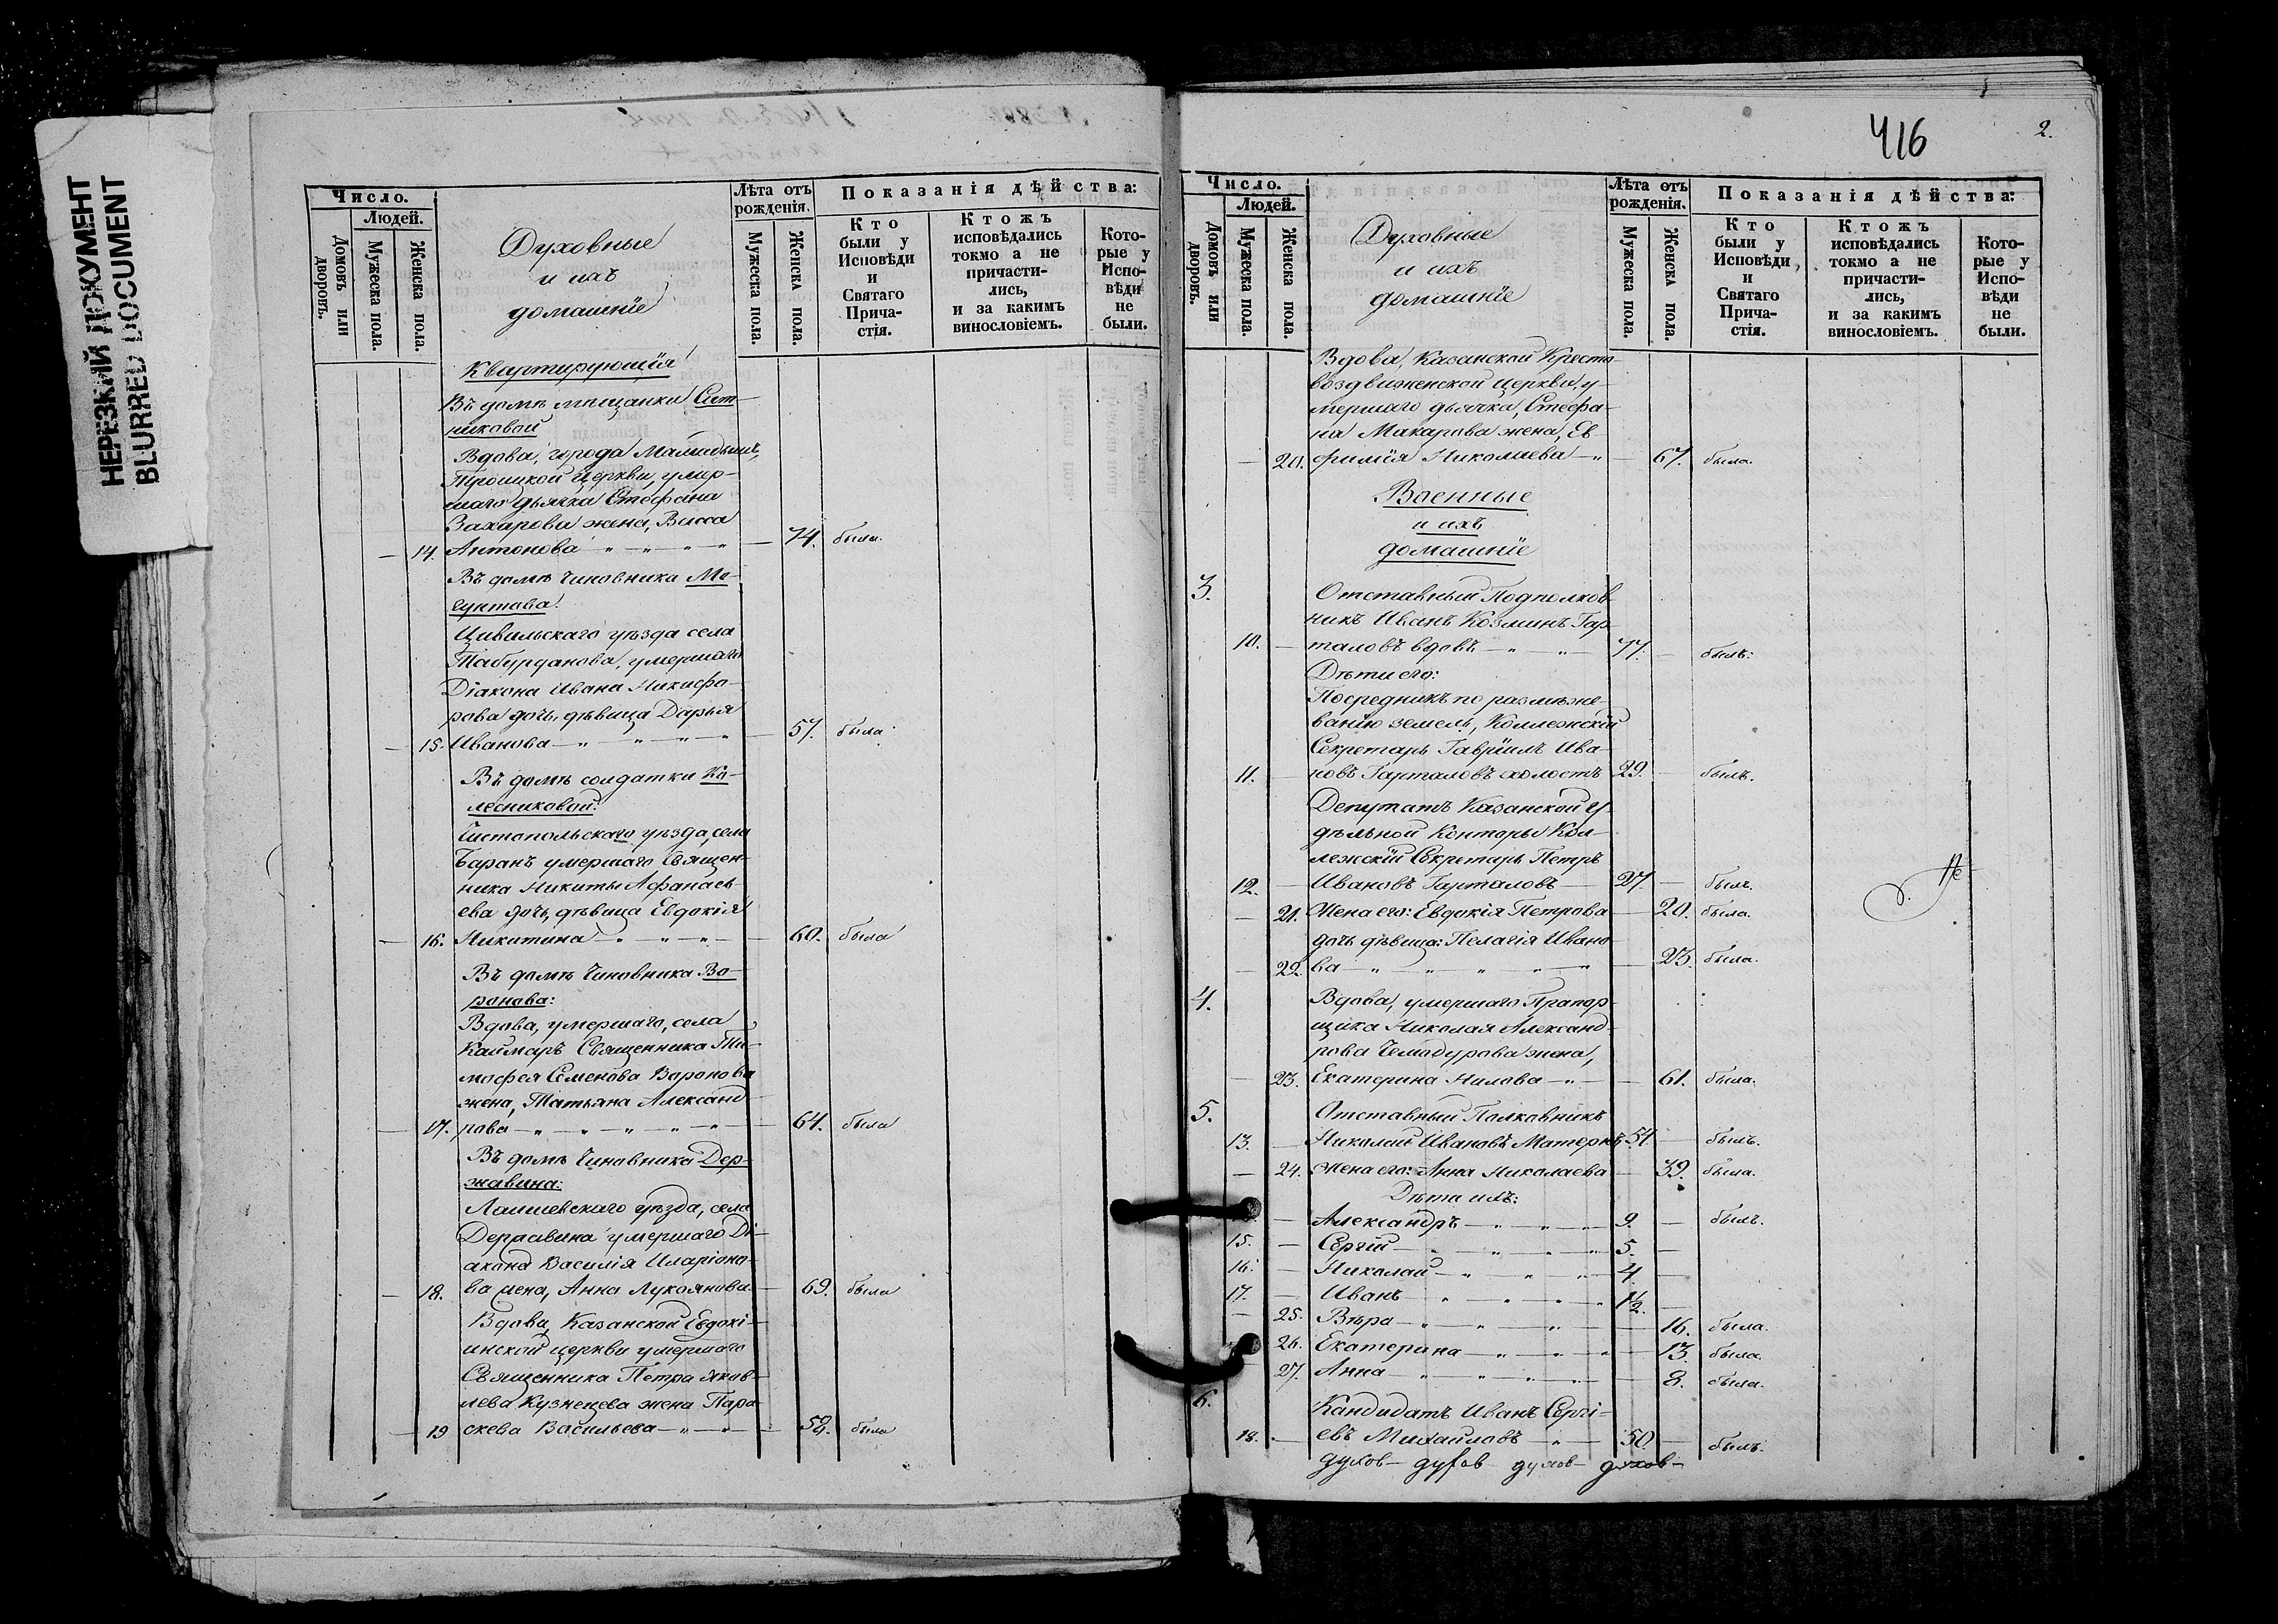 НЕРЕЗКИЙ ДОКУМЕНТ
BLURRED DOCUMENT
Число.
Людей.
Домовъ или дворовъ.
Мужеска пола.
Женска пола.
Духовные
и ихъ
домашнїе
Лѣта отъ рожденія.
Мужеска пола.
Женска пола.
Показанія дѣйства:
Кто были у Исповѣди и Святаго Прича-стія.
Ктожъ исповѣдались токмо а не причасти-лись, и за какимъ винословіемъ.
Кото-рые у Испо-вѣди не были.
Квартирующїя
Въ домѣ мѣщанки Сит-
никовой
Вдова, города Мамадышъ,
Троицкой Церкви, умер-
шаго дьячка Стефана
Захарова жена, Васса
— 14. Антонова — 74. была.
Въ домѣ чиновника
Цивильскаго уѣзда села
Табурданова, умершаго
Діакона Ивана Никифо-
рова дочь, дѣвица Дарья
— 15. Иванова — 57. была
Въ домѣ солдатки Ко-
лесниковой:
Чистопольскаго уѣзда, села
Баранъ умершаго Священ-
ника Никиты Афанась-
ева дочь, дѣвица Евдокія
— 16. Никитина — 60. была
Въ домѣ Чиновника Во-
ронова:
Вдова, умершаго, села
Каймаръ Священника Ти-
мофея Семенова Воронова
жена, Татьяна Александ-
— 17. рова — 64. была
Въ домѣ Чиновника Дер-
жавина:
Лаишевскаго уѣзда, села
Державина умершаго Ді-
акона Василія Иларіоно-
— 18. ва жена, Анна Лукоянова — 69. была
Вдова, Казанской Евдокі-
инской церкви умершаго
Священника Петра Яков-
лева Кузнецова жена Пара-
— 19 скева Васильева — 58. была
416
2.
Число.
Людей.
Домовъ или дворовъ.
Мужеска пола.
Женска пола.
Духовные
и ихъ
домашнїе
Лѣта отъ рожденія.
Мужеска пола.
Женска пола.
Показанія дѣйства:
Кто были у Исповѣди и Святаго Прича-стія.
Ктожъ исповѣдались токмо а не причасти-лись, и за какимъ винословіемъ.
Кото-рые у Испо-вѣди не были.
Вдова, Казанской Кресто-
воздвиженской Церкви, у-
мершаго дьячка, Стефа-
на Макарова жена, Ев-
— 20. фимїя Николаева — 67. была.
Военные
и ихъ
домашнїе
3. Отставный Подполков-
никъ Иванъ Козминъ Гар-
10. — таловъ вдовъ — 77. — былъ.
Дѣти его:
Посредникъ по размѣже-
ванію земель, Коллежскій
Секретарь Гаврїилъ Ива-
11. — новъ Гарталовъ холостъ 29. — былъ.
Депутатъ Казанской У-
дѣльной Конторы Кол-
лежскїй Секретарь Петръ
12. — Ивановъ Гарталовъ — 27. — былъ.
— 21. Жена его: Евдокія Петрова — 20. была.
дочь дѣвица: Пелагія Ивано-
— 22. ва — 23. была.
4. Вдова, умершаго Прапор-
щика Николая Александ-
рова Чемодурова жена,
— 23. Екатерина Нилова — 61. была.
5. Отставный Полковникъ
13. — Николай Ивановъ 51. — былъ.
— 24. Жена его: Анна Николаева — 39. была.
Дѣти ихъ:
— Александръ — 9. — былъ.
15. — Сергій — 5. —
16. — Николай — 4. —
17. — Иванъ — 1½. —
— 25. Вѣра — 16. была.
26. Екатерина — 13. была.
27. Анна — 8. была.
6. Кандидатъ Иванъ Сергі-
18. — евъ Михайловъ — 50 — былъ.
духов- духов- духов- духов-